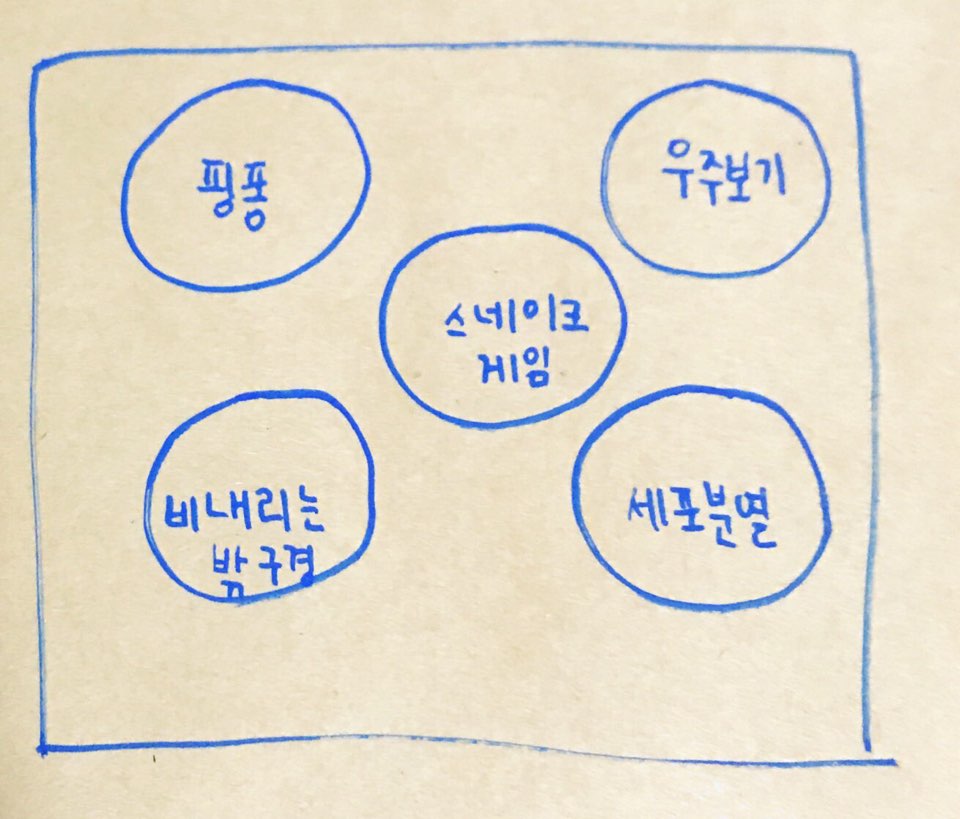 핑퐁
우주보기
스네이크
게임
비내리는
밤구경
세포분열